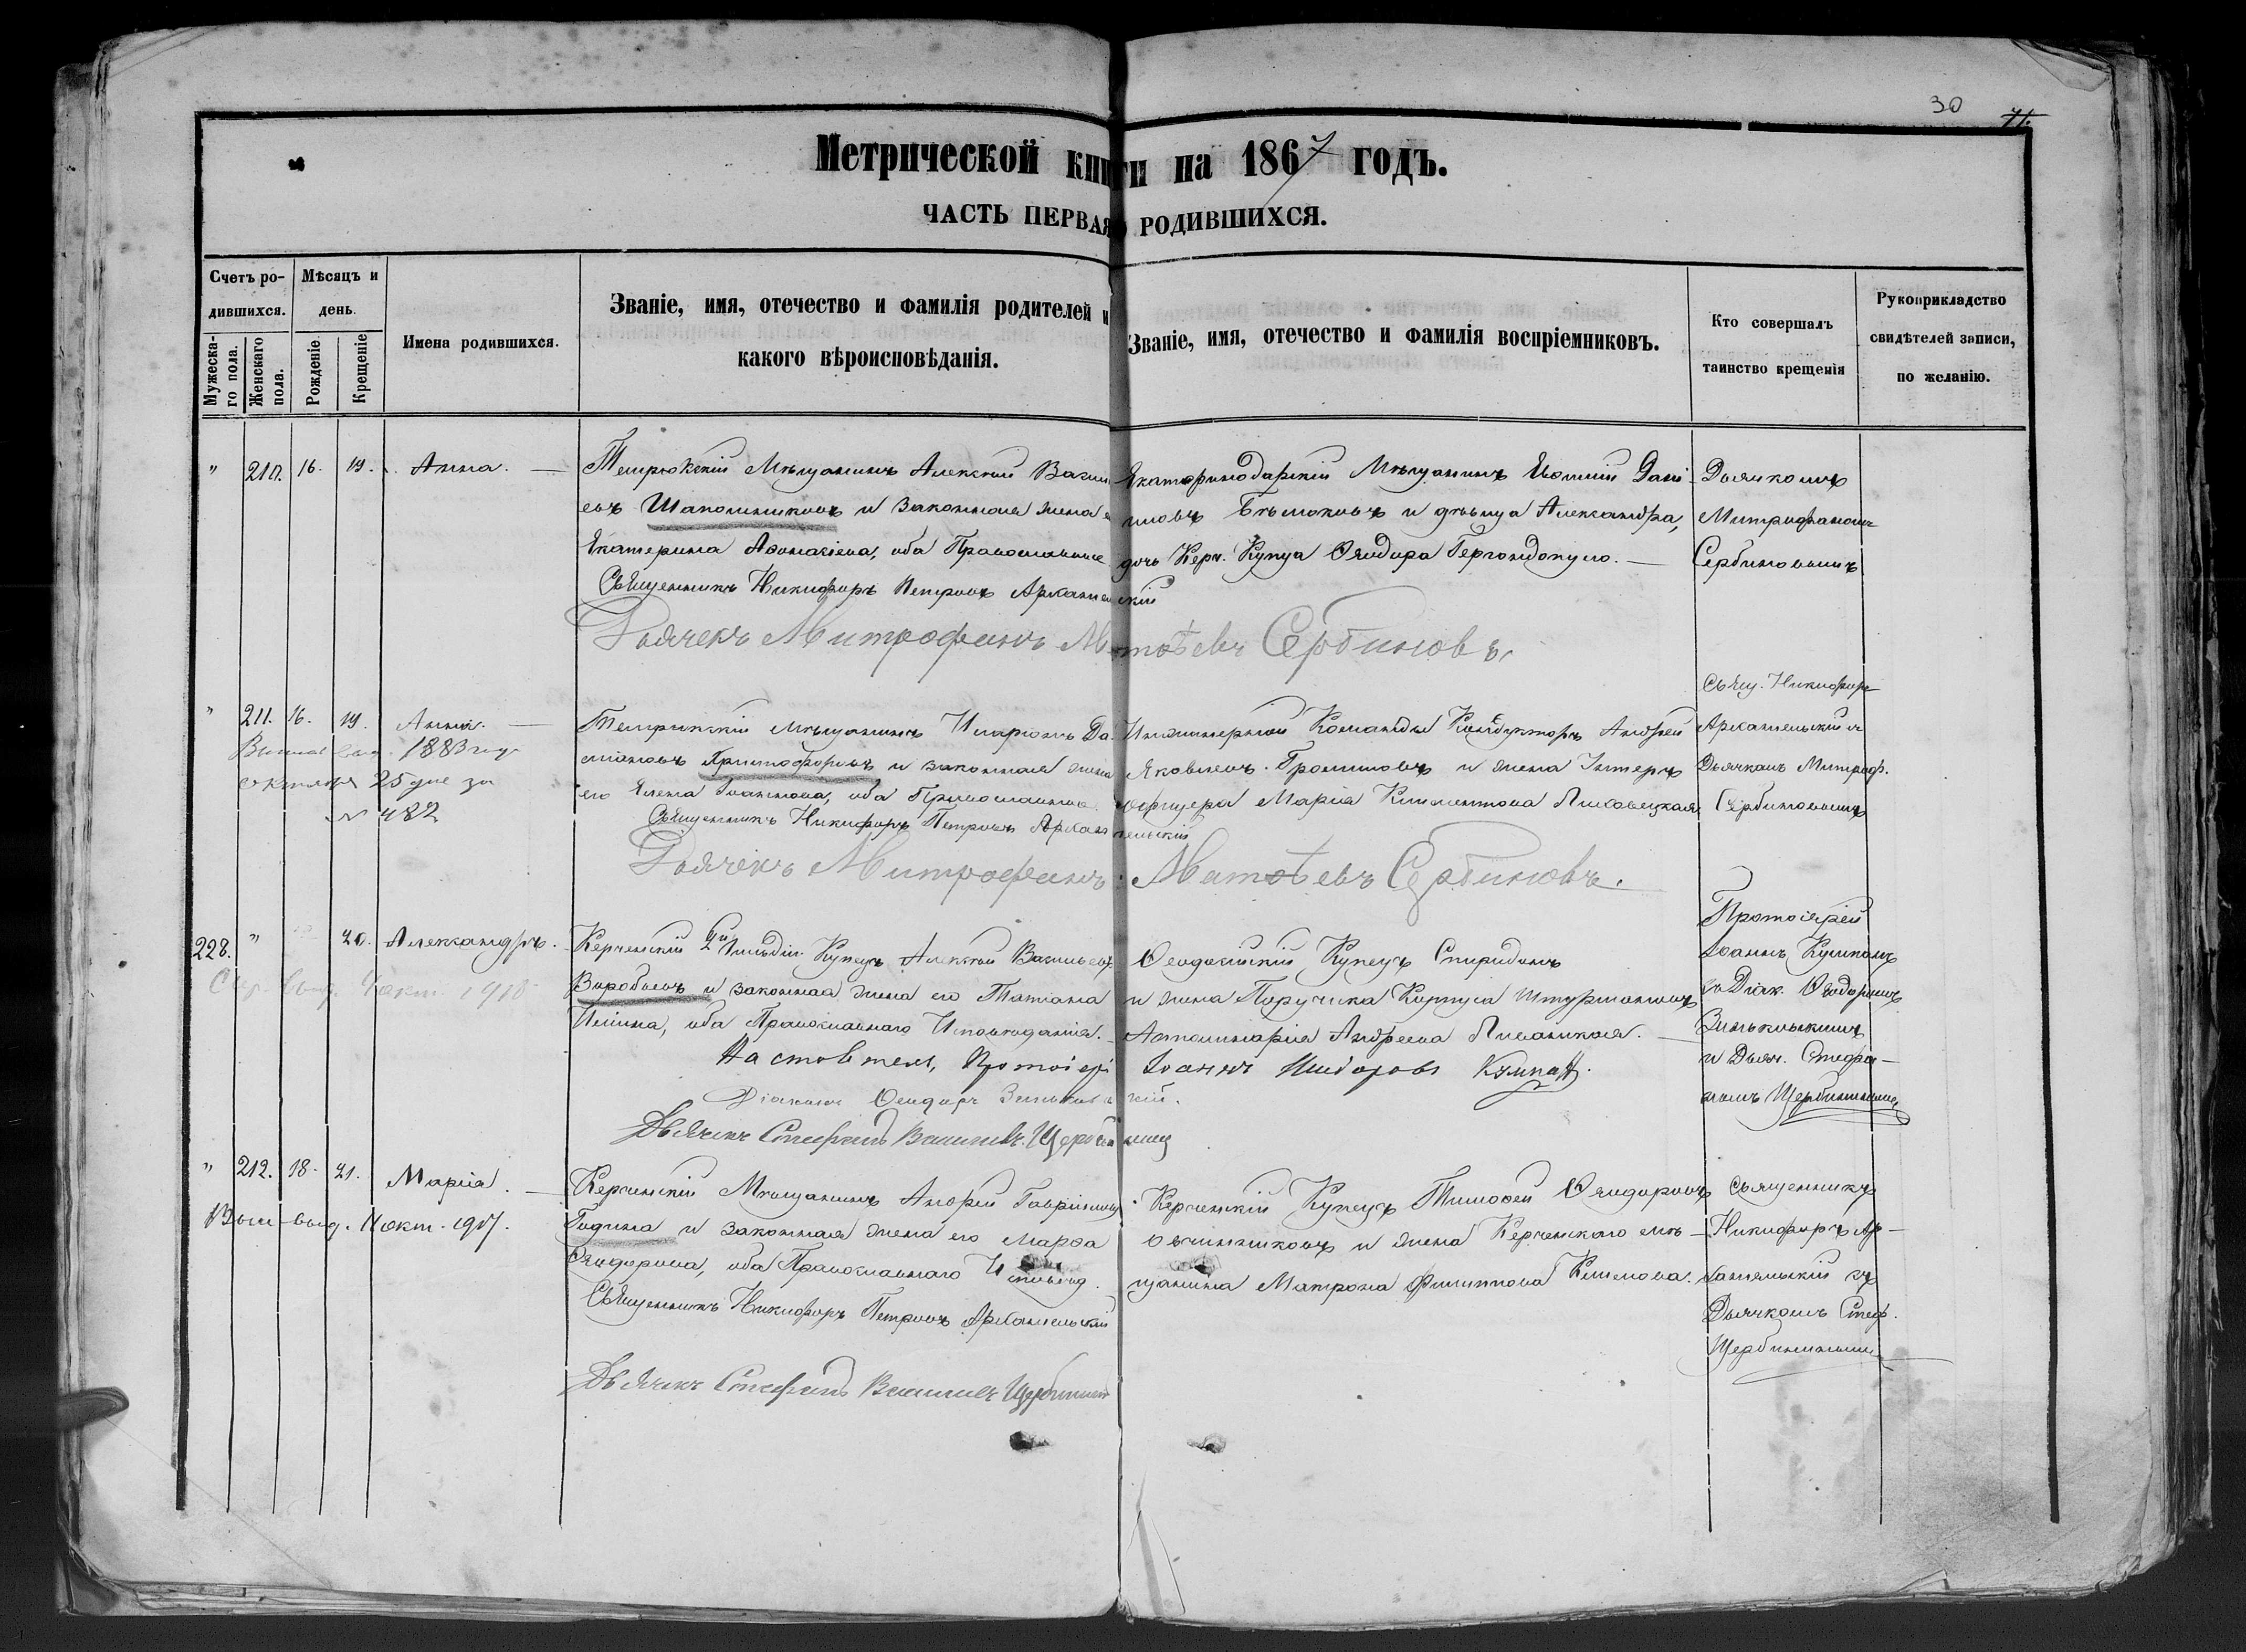 30
71.
Метрической книги на 1867 годъ.
ЧАСТЬ ПЕРВАЯ РОДИВШИХСЯ.
Счетъ родившихся.
Мужескаго пола.
Женскаго пола.
Мѣсяцъ и день.
Рожденіе.
Крещеніе
Имена родившихся.
Званіе, имя, отечество и фамилія родителей и
какого вѣроисповѣданія.
Званіе, имя, отечество и фамилія воспріемниковъ.
Кто совершалъ
таинство крещенія
Рукоприкладство
свидѣтелей записи,
по желанію.
" 210. 16. 19. Анна.
Темрюкскій Мѣщанинъ Алексѣй Васил
евъ Шапошниковъ и законная жена е
Екатерина Афонасіева, оба Православные
Священникъ Никифоръ Петровъ Архангельскій
Дьячекъ Митрофанъ Матѳѣевъ Сербиновъ.
Екатеринодарскій Мѣщанинъ Дани
иловъ и дѣвица Александра,
дочь Керч. Купца Ѳеодора
Дьячкомъ
Митрофаномъ
Сербиновымъ
" 211. 16. 19. Анна.
1883 года
октября 25 дня за
№ 482
Темрюкскій мѣщанинъ Иларіонъ Да
міановъ Христофоровъ и законная жена
его Елена Іоаннова, оба Православные
Священникъ Никифоръ Петровъ Архангельскій
Дьячекъ Митрофанъ Матѳѣевъ Сербиновъ.
Инженерной Команды Кондукторъ Андрей
Яковлевъ и жена
офицера Марія Климентова
Свящ. Никифоръ
Архангельскій съ
Дьячкомъ Митроф.
Сербиновымъ
228. " 20. Александръ.
выд. 4 окт. 1910
Керченскій 2й Гильдіи Купецъ Алексѣй Васильевъ
Воробьевъ и законная жена его Татіана
Ильина, оба Православнаго Исповѣданія.
Настоятель, Протоіерей Іоаннъ Кумпанъ.
Діаконъ Ѳеодоръ Зеньковскій.
Дьячекъ Стефанъ Васильевъ Щербина
Ѳеодосійскій Купецъ Спиридонъ
и жена Поручика Корпуса Штурмановъ
Аполинарія Андреева
Протоіерей
Іоаннъ Кумпанъ
съ Діак. Ѳеодоромъ
Зеньковскимъ
и Дьяч. Стефа-
номъ
" 212. 18. 21. Марія.
выд. 11 окт. 1907.
Керченскій Мѣщанинъ Андрей Гавріиловъ
Година и законная жена его Марѳа
Ѳеодорова, оба Православнаго Исповѣд.
Священникъ Никифоръ Петровъ Архангельскій
Дьячекъ Стефанъ Васильевъ
Керченскій Купецъ Тимоѳей Ѳеодоровъ
Овчинниковъ и жена Керченскаго мѣ-
щанина Матрона Филиппова
Священникъ
Никифоръ Ар-
хангельскій съ
Дьячкомъ Стеф.